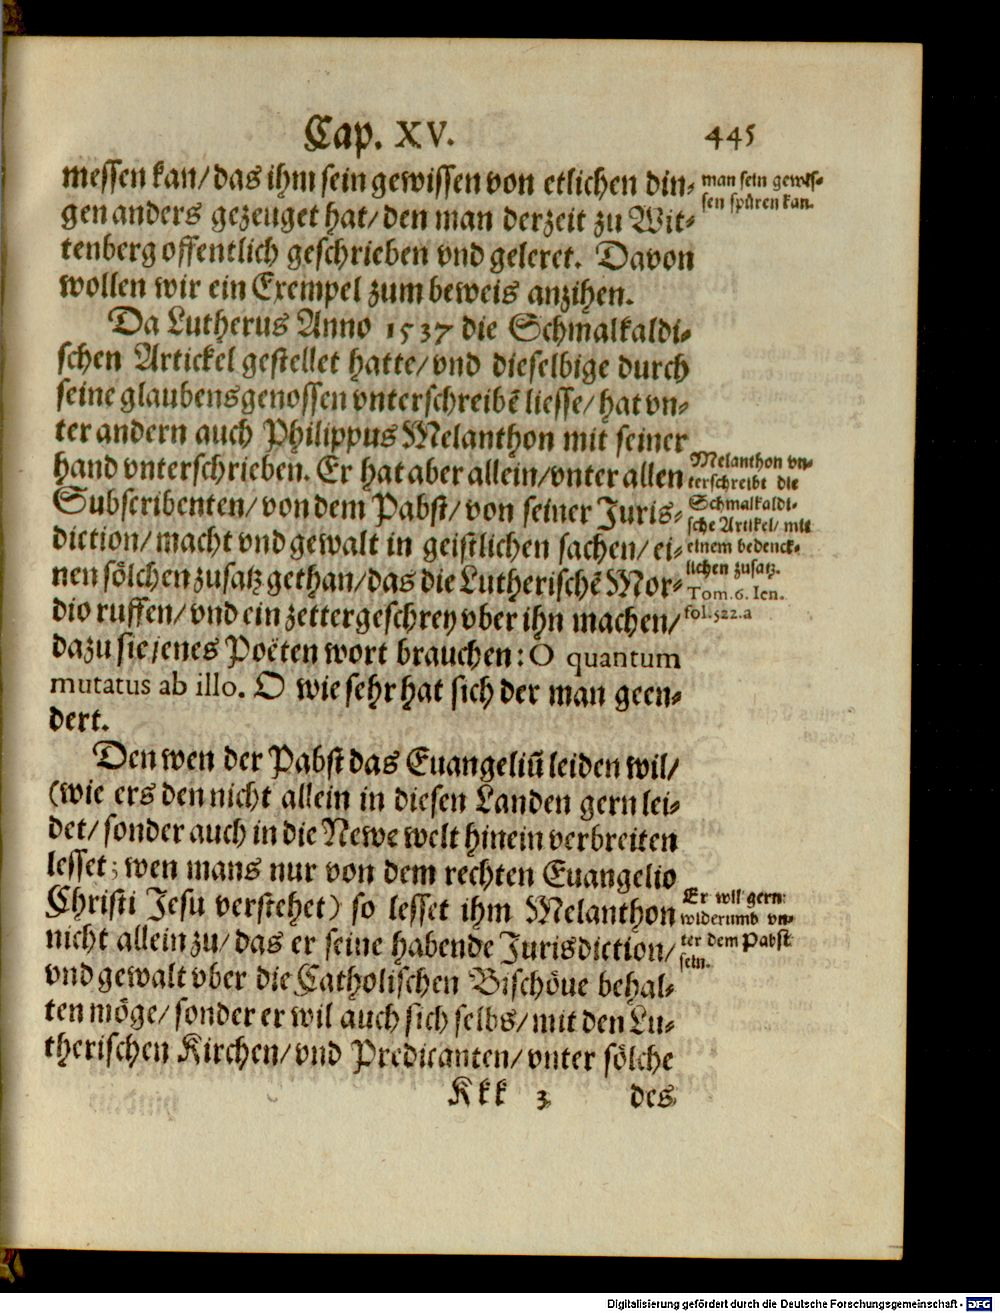 Cap. XV. 445
messen kan/das ihm sein gewissen von etlichen din-
gen anders gezeuget hat/den man derzeit zu Wit-
tenberg offentlich geschrieben vnd geleret. Davon
wollen wir ein Exempel zum beweis anzihen.
Da Lutherus Anno 1537 die Schmalkaldi-
schen Artickel gestellet hatte/vnd dieselbige durch
seine glaubensgenossen vnterschreibẽ liesse/hat vn-
ter andern auch Philippus Melanthon mit seiner
hand vnterschrieben. Er hat aber allein/vnter allen
Subscribenten/von dem Pabst/von seiner Juris-
diction/macht vnd gewalt in geistlichen sachen/ei-
nen sölchen zusatz gethan/das die Lutherischẽ Mor-
dio ruffen/vnd ein zettergeschrey vber ihn machen/
dazu sie jenes Poëten wort brauchen: O quantum
mutatus ab illo. O wie sehr hat sich der man geen-
dert.
Den wen der Pabst das Euangeliũ leiden wil/
(wie ers den nicht allein in diesen Landen gern lei-
det/sonder auch in die Newe welt hinein verbreiten
lesset; wen mans nur von dem rechten Euangelio
Christi Jesu verstehet) so lesset ihm Melanthon
nicht allein zu/das er seine habende Jurisdiction/
vnd gewalt vber die Catholischen Bischöue behal-
ten möge/sonder er wil auch sich selbs/mit den Lu-
therischen Kirchen/vnd Predicanten/vnter sölche
Kkk 3 des
man sein gewis-
sen spüren kan.
Melanthon vn-
terschreibt die
Schmalkaldi-
sche Artikel/mit
einem bedenck-
lichen zusatz.
Tom. 6. Ien.
fol. 522.a
Er wil gern
widerumb vn-
ter dem Pabst
sein.
Digitalisierung gefördert durch die Deutsche Forschungsgemeinschaft - DFG